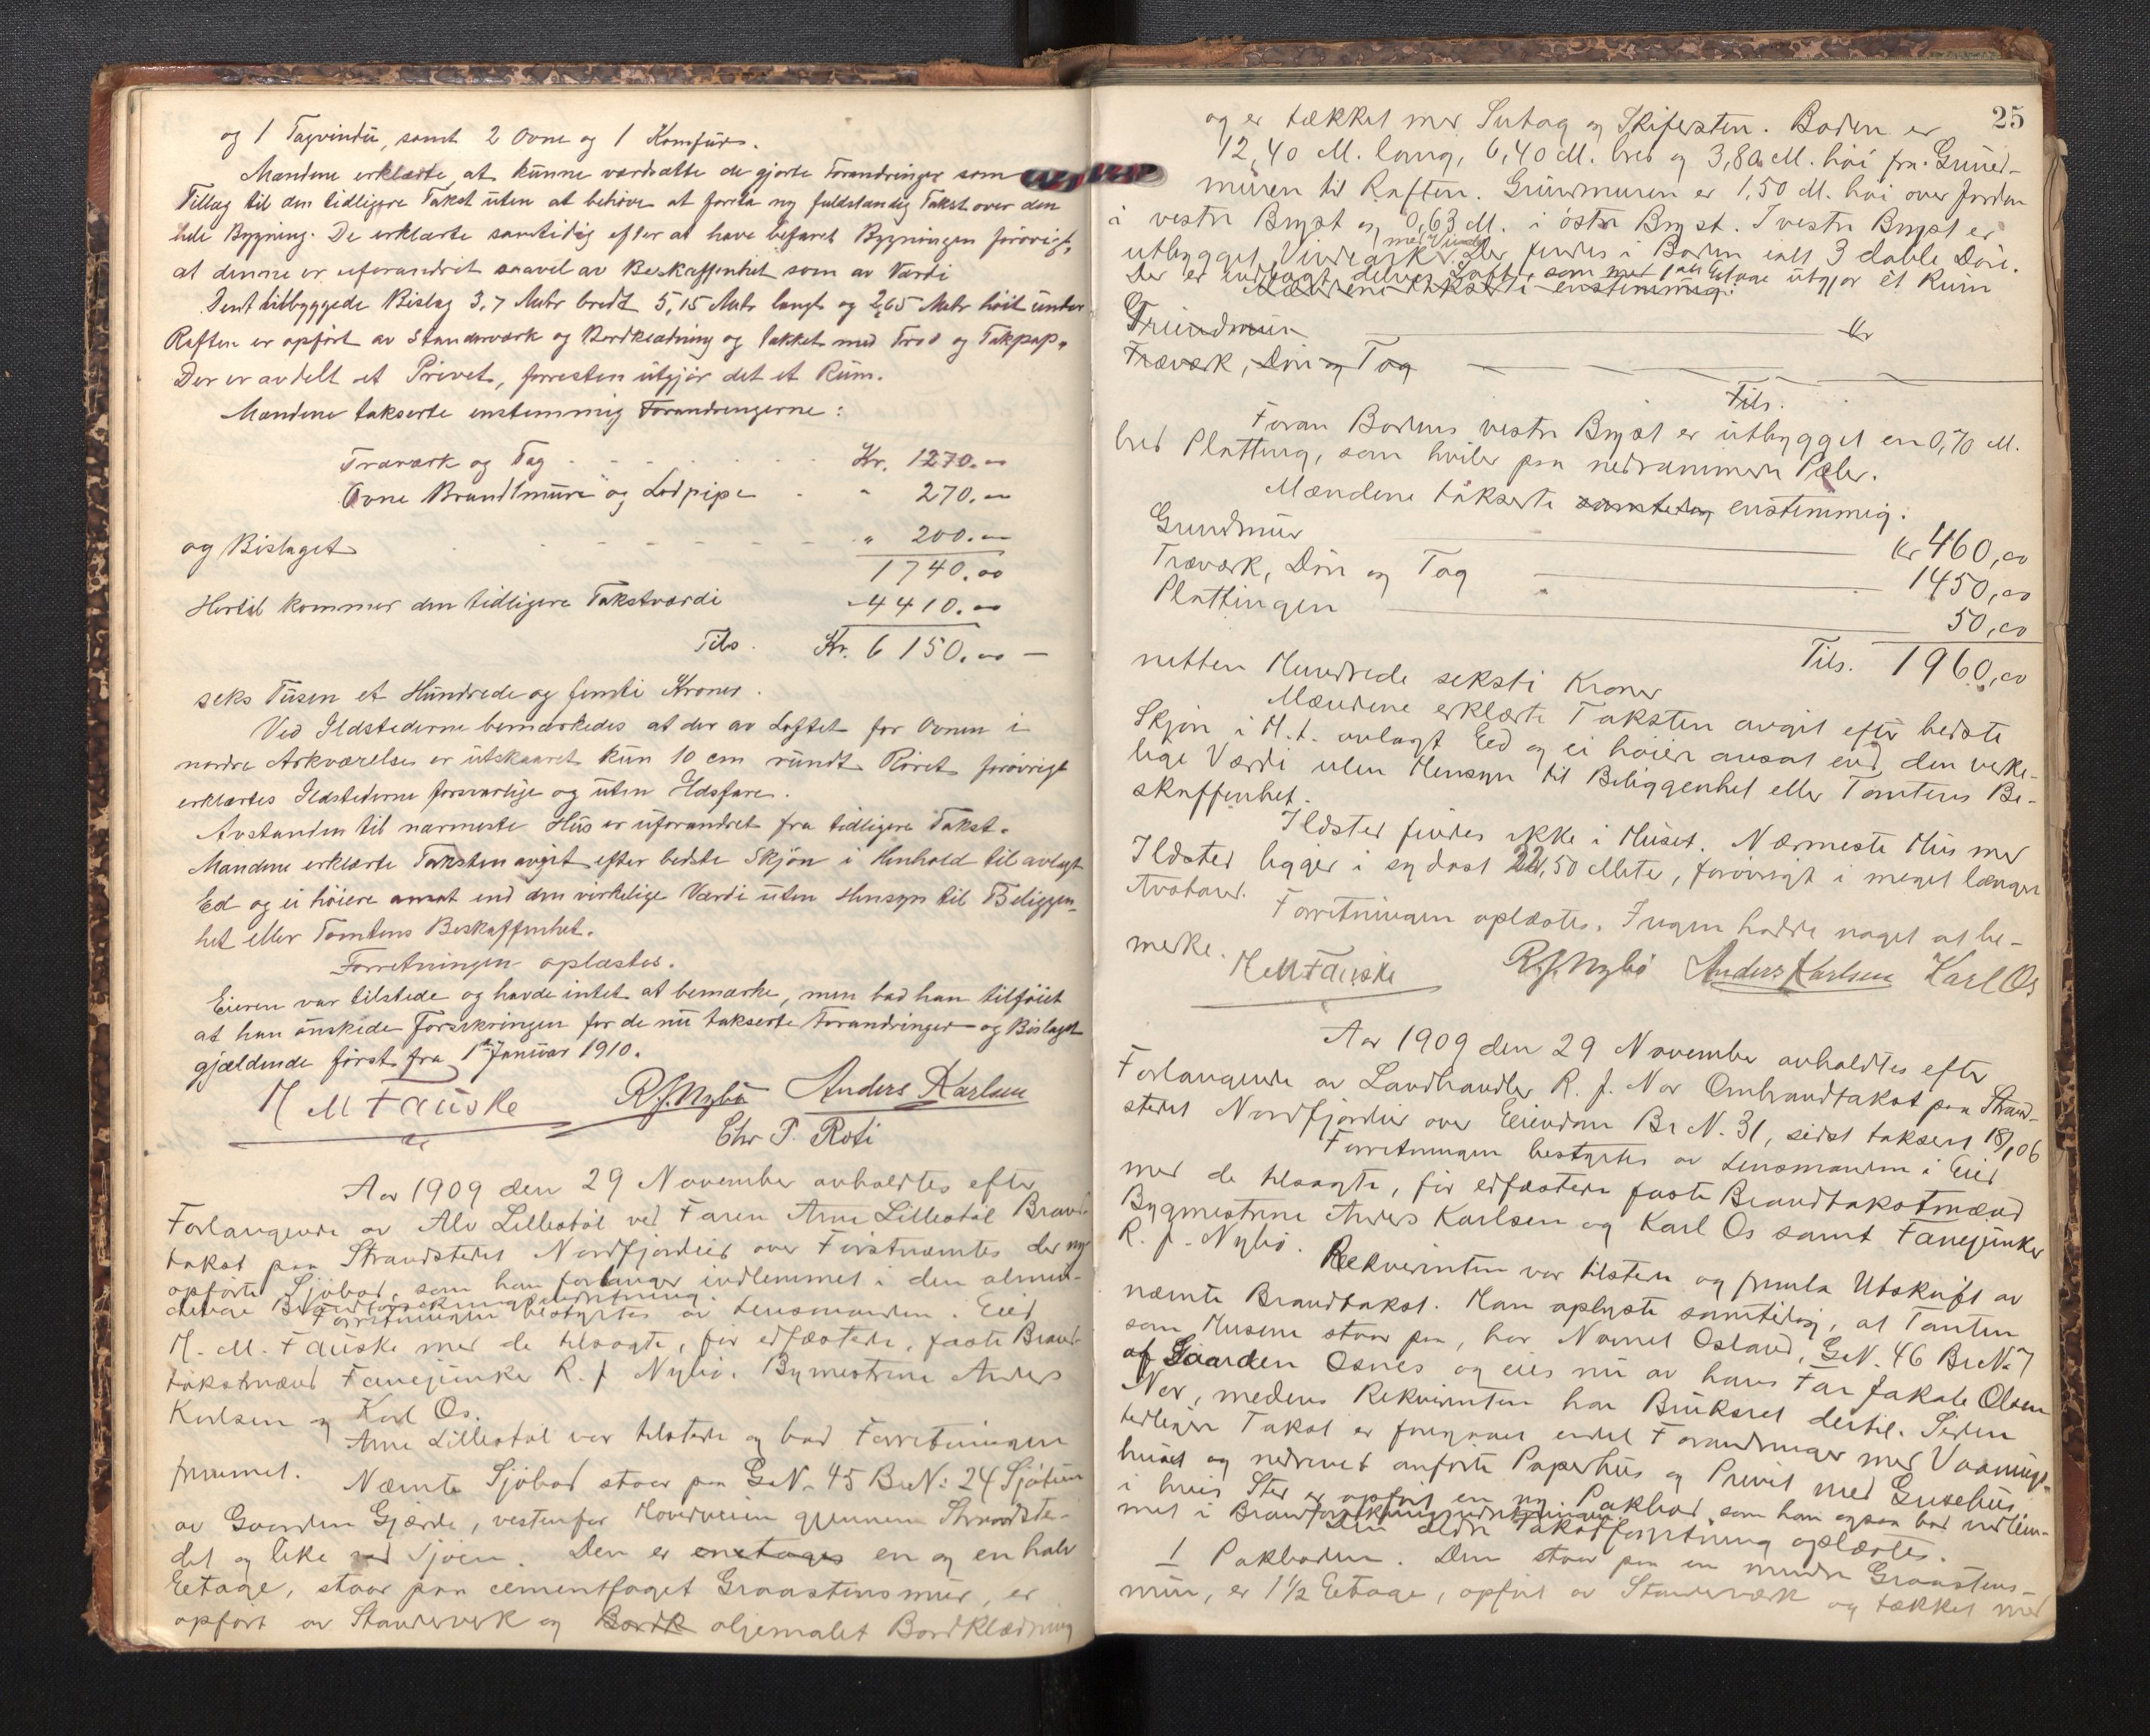 og 1 Tagvindu, samt 2 Ovne og 1 Komfur.
Mændene erklærte, at kunne værdsætte de gjorte Forandringer som
Tillæg til den tidligere Takst uten at behøve at foreta ny fuldstændig Takst over den
hele Bygning. De erklærte samtidig efter at have befaret Bygningen forøvrigt,
at denne er uforandret saavel av Beskaffenhet som av Værdi
Dent tilbyggede Bislag 3,7 Meter bredt 5,15 Meter langt og 2,65 Meter høit under
Raften er opført av Standerværk og Bordklædning og tækket med Træ og Takpap.
Der er avdelt et Privet, forresten utgjør det et Rum.
Mændene takserte enstemmig Forandringerne:
Træværk og Tag Kr. 1270.00
Ovne Brandtmure og Lodpipe " 270.00
og Bislaget " 200.00
1740.00
Hertil kommer den tidligere Takstværdi 4410.00
Tils. Kr. 6150.00 —
seks Tusen et Hundrede og femti Kroner.
Ved Ildstederne bemærkedes at der av Loftet for Ovnen i
nordre Arkværelse er utskaaret kun 10 cm rundt Røret forøvrigt
erklærtes Ildstederne forsvarlige og uten Ildsfare.
Avstanden til nærmeste Hus er uforandret fra tidligere Takst.
Mændene erklærte Taksten avgit efter bedste Skjøn i Henhold til avlagt
Ed og ei høiere ansat end den virkelige Værdi uten Hensyn til Beliggen-
het eller Tomtens Beskaffenhet.
Forretningen oplæstes.
Eieren var tilstede og havde intet at bemærke, men bad han tilføiet
at han ønskede Forsikringen for de nu takserte Forandringer og Bislaget
gjældende først fra 1ste Januar 1910.
H M Fauske R. J. Nybø Anders Karlsen
Chr P. Roti
Aar 1909 den 29 November avholdtes efter
Forlangende av Alv Lillestøl ved Faren Arne Lillestøl Brand-
takst paa Strandstedet Nordfjordeid over Førstnæmtes der ny
opførte Sjøbod, som han forlanger indlemmet i den almin-
delige Brandforsikringsindretning.
Forretningen bestyrtes av Lensmanden i Eid
H. M. Fauske med de tilsagte, før edfæstede, faste Brand-
takstmænd Fanejunker R. J. Nybø, Bymestrene Anders
Karlsen og Karl Os.
Arne Lillestøl var tilstede og bad Forretningen
fremmet.
Næmte Sjøbod staar paa G.N. 45 Br.N: 24 Sjøtun
av Gaarden Gjærde, vestenfor Hovedveien gjennem Strandste-
det og like ved Sjøen. Den er enetages en og en halv
Eetage, staar paa cementfaget Graastensmur, er
opført av Standerverk og Bordk oljemalet Bordklædning
25
og er tækket med Sutag og Skifersten. Boden er
12,40 M. lang, 6,40 M. bred og 3,80 M. høi fra Grund-
muren til Raften. Grundmuren er 1,50 M. høi over Jorden
i vestre Bryst og 0,63 M. i østre Bryst. I vestre Bryst er
utbygget Vindeark med Vindu. Der findes i Boden ialt 3 doble Døre.
Der er indlagt delvis Loft, som med 1ste Etage utgjør ét Rum
Mændene takserte enstemmig:
Grundmur Kr
Træværk, Dør og Tag
Tils.
Foran Bodens vestre Bryst er utbygget en 0,70 M.
bred Platting, som hviler paa nedrammede Pæler.
Mændene takserte samtidig enstemmig:
Grundmur Kr 460,00
Træværk, Dør og Tag " 1450,00
Plattingen 50,00
Tils. 1960,00
nitten Hundrede seksti Kroner
Mændene erklærte Taksten avgit efter bedste
Skjøn i H.t. avlagt Eed og ei høiere ansat end den virke-
lige Værdi uten Hensyn til Beliggenhet eller Tomtens Be-
skaffenhet.
Ildsted findes ikke i Huset. Nærmeste Hus med
Ildsted ligger i sydost 22,50 Meter, forøvrigt i meget længer
Avstand.
Forretningen oplæstes. Ingen hadde noget at be-
merke.
H M Fauske R. J. Nybø Anders Karlsen Karl Os
Aar 1909 den 29 November avholdtes efter
Forlangende av Landhandler R. J. Nor Ombrandtakst paa Strand-
stedet Nordfjordeid over Eiendom Br N. 31, sidst taksert 18/ 06
Forretningen bestyrtes av Lensmanden i Eid
med de tilsagte, før edfæstede faste Brandtakstmænd
Bygmestrene Anders Karlsen og Karl Os samt Fanejunker
R. J. Nybø.
Rekvirenten var tilstede og fremla Utskrift av
næmte Brandtakst. Han oplyste samtidig, at Tomten
som Husene staar paa, har Navnet Osland, G.N. 46 Br.N. 7
af Gaarden Osnes og eies nu av hans Far Jakob Olsen
Nor, medens Rekvirenten har Bruksret dertil. Siden
tidligere Takst er foregaaet endel Forandringer med Vaanings-
huset og nedrevet anførte Paperhus og Privet med Grisehus
i hvis Sted er opført en ny Pakbod, som han ogsaa bad indlem-
met i Brandforsikringsindretningen.
Den ældre Takstforretning oplæstes.
1 Pakboden. Den staar paa en mindre Graastens-
mur, er 1 1/2 Eetage, opført av Standerværk og tækket med